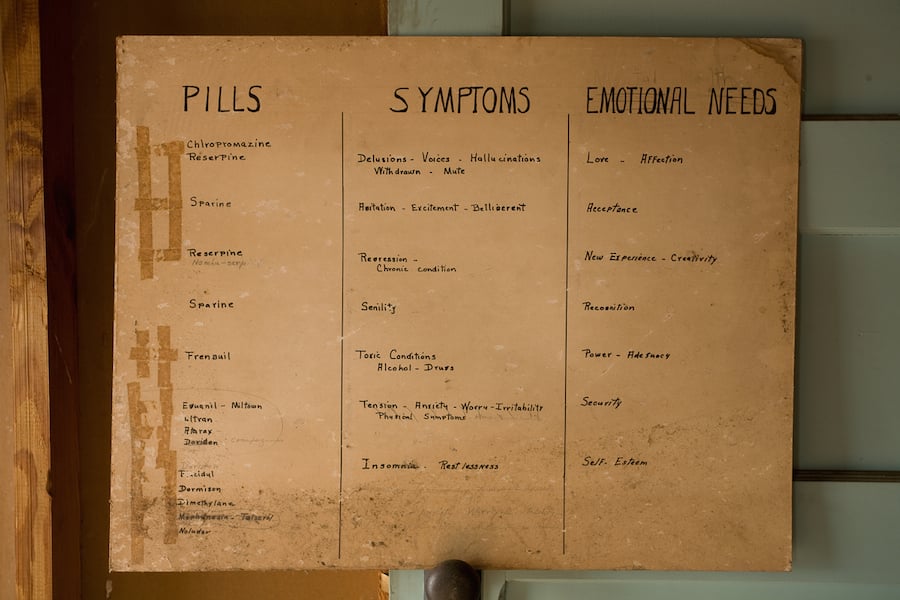 PILLS
SYMPTOMS
EMOTIONAL NEEDS
Chlropromazine
Reserpine
Sparine
Reserpine
Sparine
Frenquil
Equanil - Miltown
Ultran
Atarax
Doriden
Dormison
Dimethylane
Noludar
Delusions - Voices - Hallucinations
Withdrawn - Mute
Agitation - Excitement - Belligerent
Regression -
Chronic condition
Senility
Toxic Conditions
Alcohol - Drugs
Tension - Anxiety - Worry - Irritability
Physical Symptoms
Insomnia - Restlessness
Love - Affection
Acceptance
New Experience - Creativity
Recognition
Power - Adequacy
Security
Self- Esteem